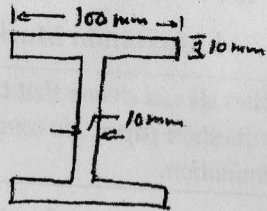 100 mm
10 mm
10 mm